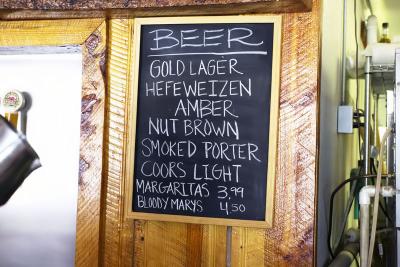 BEER
GOLD LAGER
HEFEWEIZEN
AMBER
NUT BROWN
SMOKED PORTER
COORS LIGHT
MARGARITAS 3.99
BLOODY MARYS 4.50